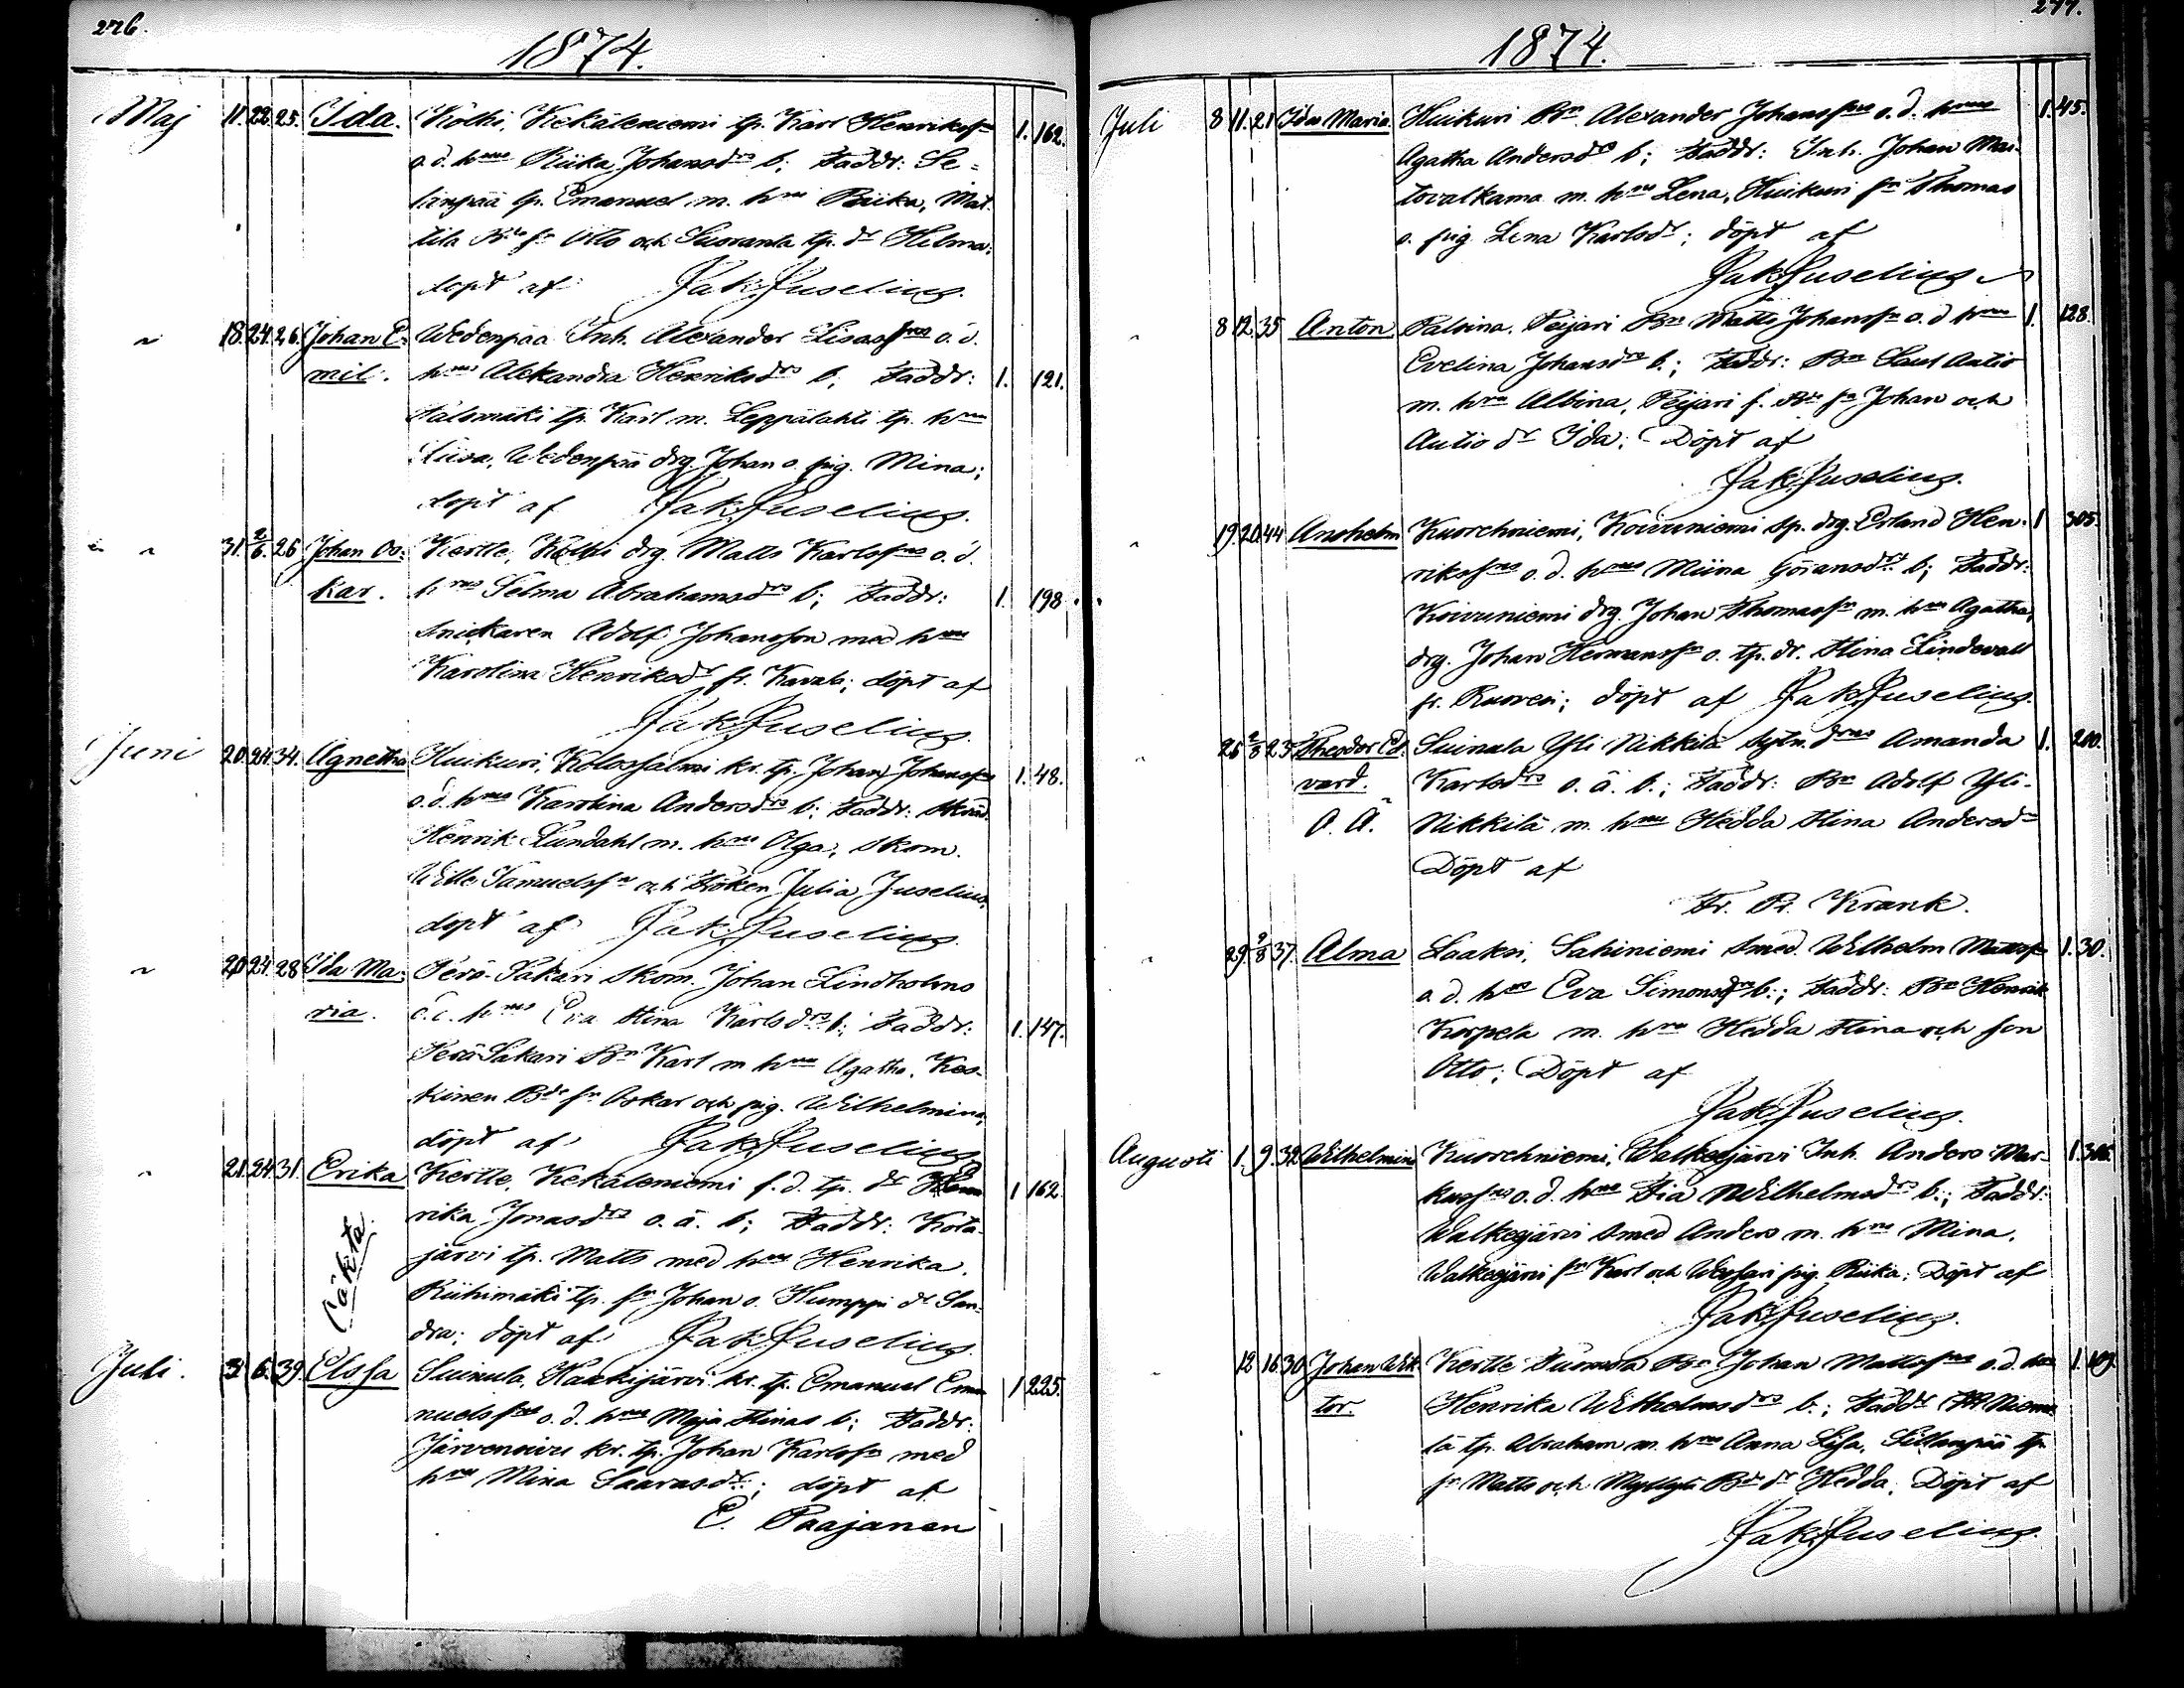 276.
1874.
Maj 11. 22. 25. Ida. Kolhi, Kekäleniemi tp. Karl Henrikss 1. 162.
o. d. hns Riika Johansdrs b; Faddr: Se-
linpää tp. Emanuel m. hru Riika, Mat-
tila Bde sn Otto och Suoranta tp. dr Helma;
döpt af Jak. Juselius.
" 18. 24. 26. Johan E- Wedenpää Inh. Alexander Lisass o. d.
mil. hns Aleksandra Henriksdrs b; Faddr: 1. 121.
tp. Karl m. Leppälahti tp. hru
Liisa, Wedenpää drg. Johan o. pig. Mina;
döpt af Jak. Juselius.
" 31. 2/6. 26 Johan Os- Kertte, Kolhi drg. Matts Karlss o. d.
kar. hns Selma Abrahamsdrs b; Faddr: 1. 198.
Snickaren Adolf Johansson med hru
Karolina Henriksdr fr. ; döpt af
Jak. Juselius.
Juni 20. 24. 34. Agnetha Huikuri, Kolossalmi kr. tp. Johan Johanss 1. 48.
o. d. hns Karolina Andersdrs b; Faddr: Skräd.
Henrik Lundahl m. hru Olga, skom.
Wille Samuelss och Fröken Julia Juselius,
döpt af Jak. Juselius.
" 20 24. 28 Ida Ma- Perä-Sakari Skom. Johan Lindholms
ria. o. d. hns Eva Stina Karlsdrs b; Faddr: 1. 147.
Perä Sakari Bn Karl m hru Agatha, Kes-
kinen Bde sn Oskar och pig. Wilhelmina,
döpt af Jak. Juselius
" 21. 24. 31. Erika Kertte, Kekäleniemi f. d. tp. dr Hen 1 162.
Oäkta. rika Jonasdrs o. ä. b; Faddr: Kota-
järvi tp. Matts med hru Henrika,
Riihimäki tp. sn Johan o. Humppi dr San-
dra; döpt af Jak. Juselius.
Juli. 3 6. 39. Elssa Suinula, Haukijärvi kr. tp. Emanuel Ema- 1 225.
nuelss o. d. hns Maja Stinas b; Faddr:
Järvensivu kr. tp. Johan Karlss med
hru Mina ; döpt af
E. Paajanen
277.
1874.
Juli 8 11. 21 Ida Maria. Huikuri Bn Alexander Johanss o. d. hns 1. 45.
Agatha Andersdrs b; Faddr: Inh. Johan Mai-
tovalkama m. hru Lena, Huikuri sn Thomas
o. pig Lena Karlsdr; döpt af
Jak. Juselius
" 8 12. 35 Anton Palsina. Peijari Bn Matts Johanss o. d hns 1. 128.
Evelina Johansdrs b.; Faddr: Bn Saul Autio
m. hru Albina, Peijari f. Bde sn Johan och
Autio dr Ida; Döpt af
Jak. Juselius.
" 19. 20. 44 Anshelm Kuorehniemi, Koivuniemi sp. drg. Erland Hen- 1 305.
rikss o. d. hns Miina Göransdrs b; Faddr:
Koivuniemi drg. Johan Thomass m. hru Agatha,
drg. Johan Hermanss o. tp. dr. Stina Lindevall
fr. Ruovesi; döpt af Jak. Juselius.
" 26 2/8 23 Theodor Ed- Suinula Yli Nikkilä Sytn. drns Amanda 1. 200.
vard. Karlsdrs o. ä. b.; Faddr: Bn Adolf Yli-
O. Ä. Nikkilä m. hru Hedda Stina Andersdr
Döpt af
Fr. Pr. Krank.
" 29. 9/8 37. Alma Laaksi, Sahiniemi Smed. Wilhelm Mattss 1. 30.
o. d. hns Eva Simonsdrs b.; Faddr: Bn Henrik
Korpela m. hru Hedda Stina och son
Otto; Döpt af
Jak. Juselius.
Augusti 1. 9. 32 Wilhelmina Kuorehniemi, Walkejärvi Inh. Anders Mar- 1. 306.
kuss o. d. hns Fia Wilhelmsdrs b.; Faddr:
Walkejärvi Smed Anders m. hru Mina.
Walkejärvi sn Karl och pig. Riika; Döpt af
Jak. Juselius.
" 12 16 30 Johan Wik- Kertte Tuomola Bn Johan Mattss o. d. hns 1. 109.
tor. Henrika Wilhelmsdrs b.; Faddr Niemi-
lä tp. Abraham m. hru Anna Lisa, Sillanpää tp.
sn Matts och Myllylä Bde dr Hedda; Döpt af
Jak. Juselius.